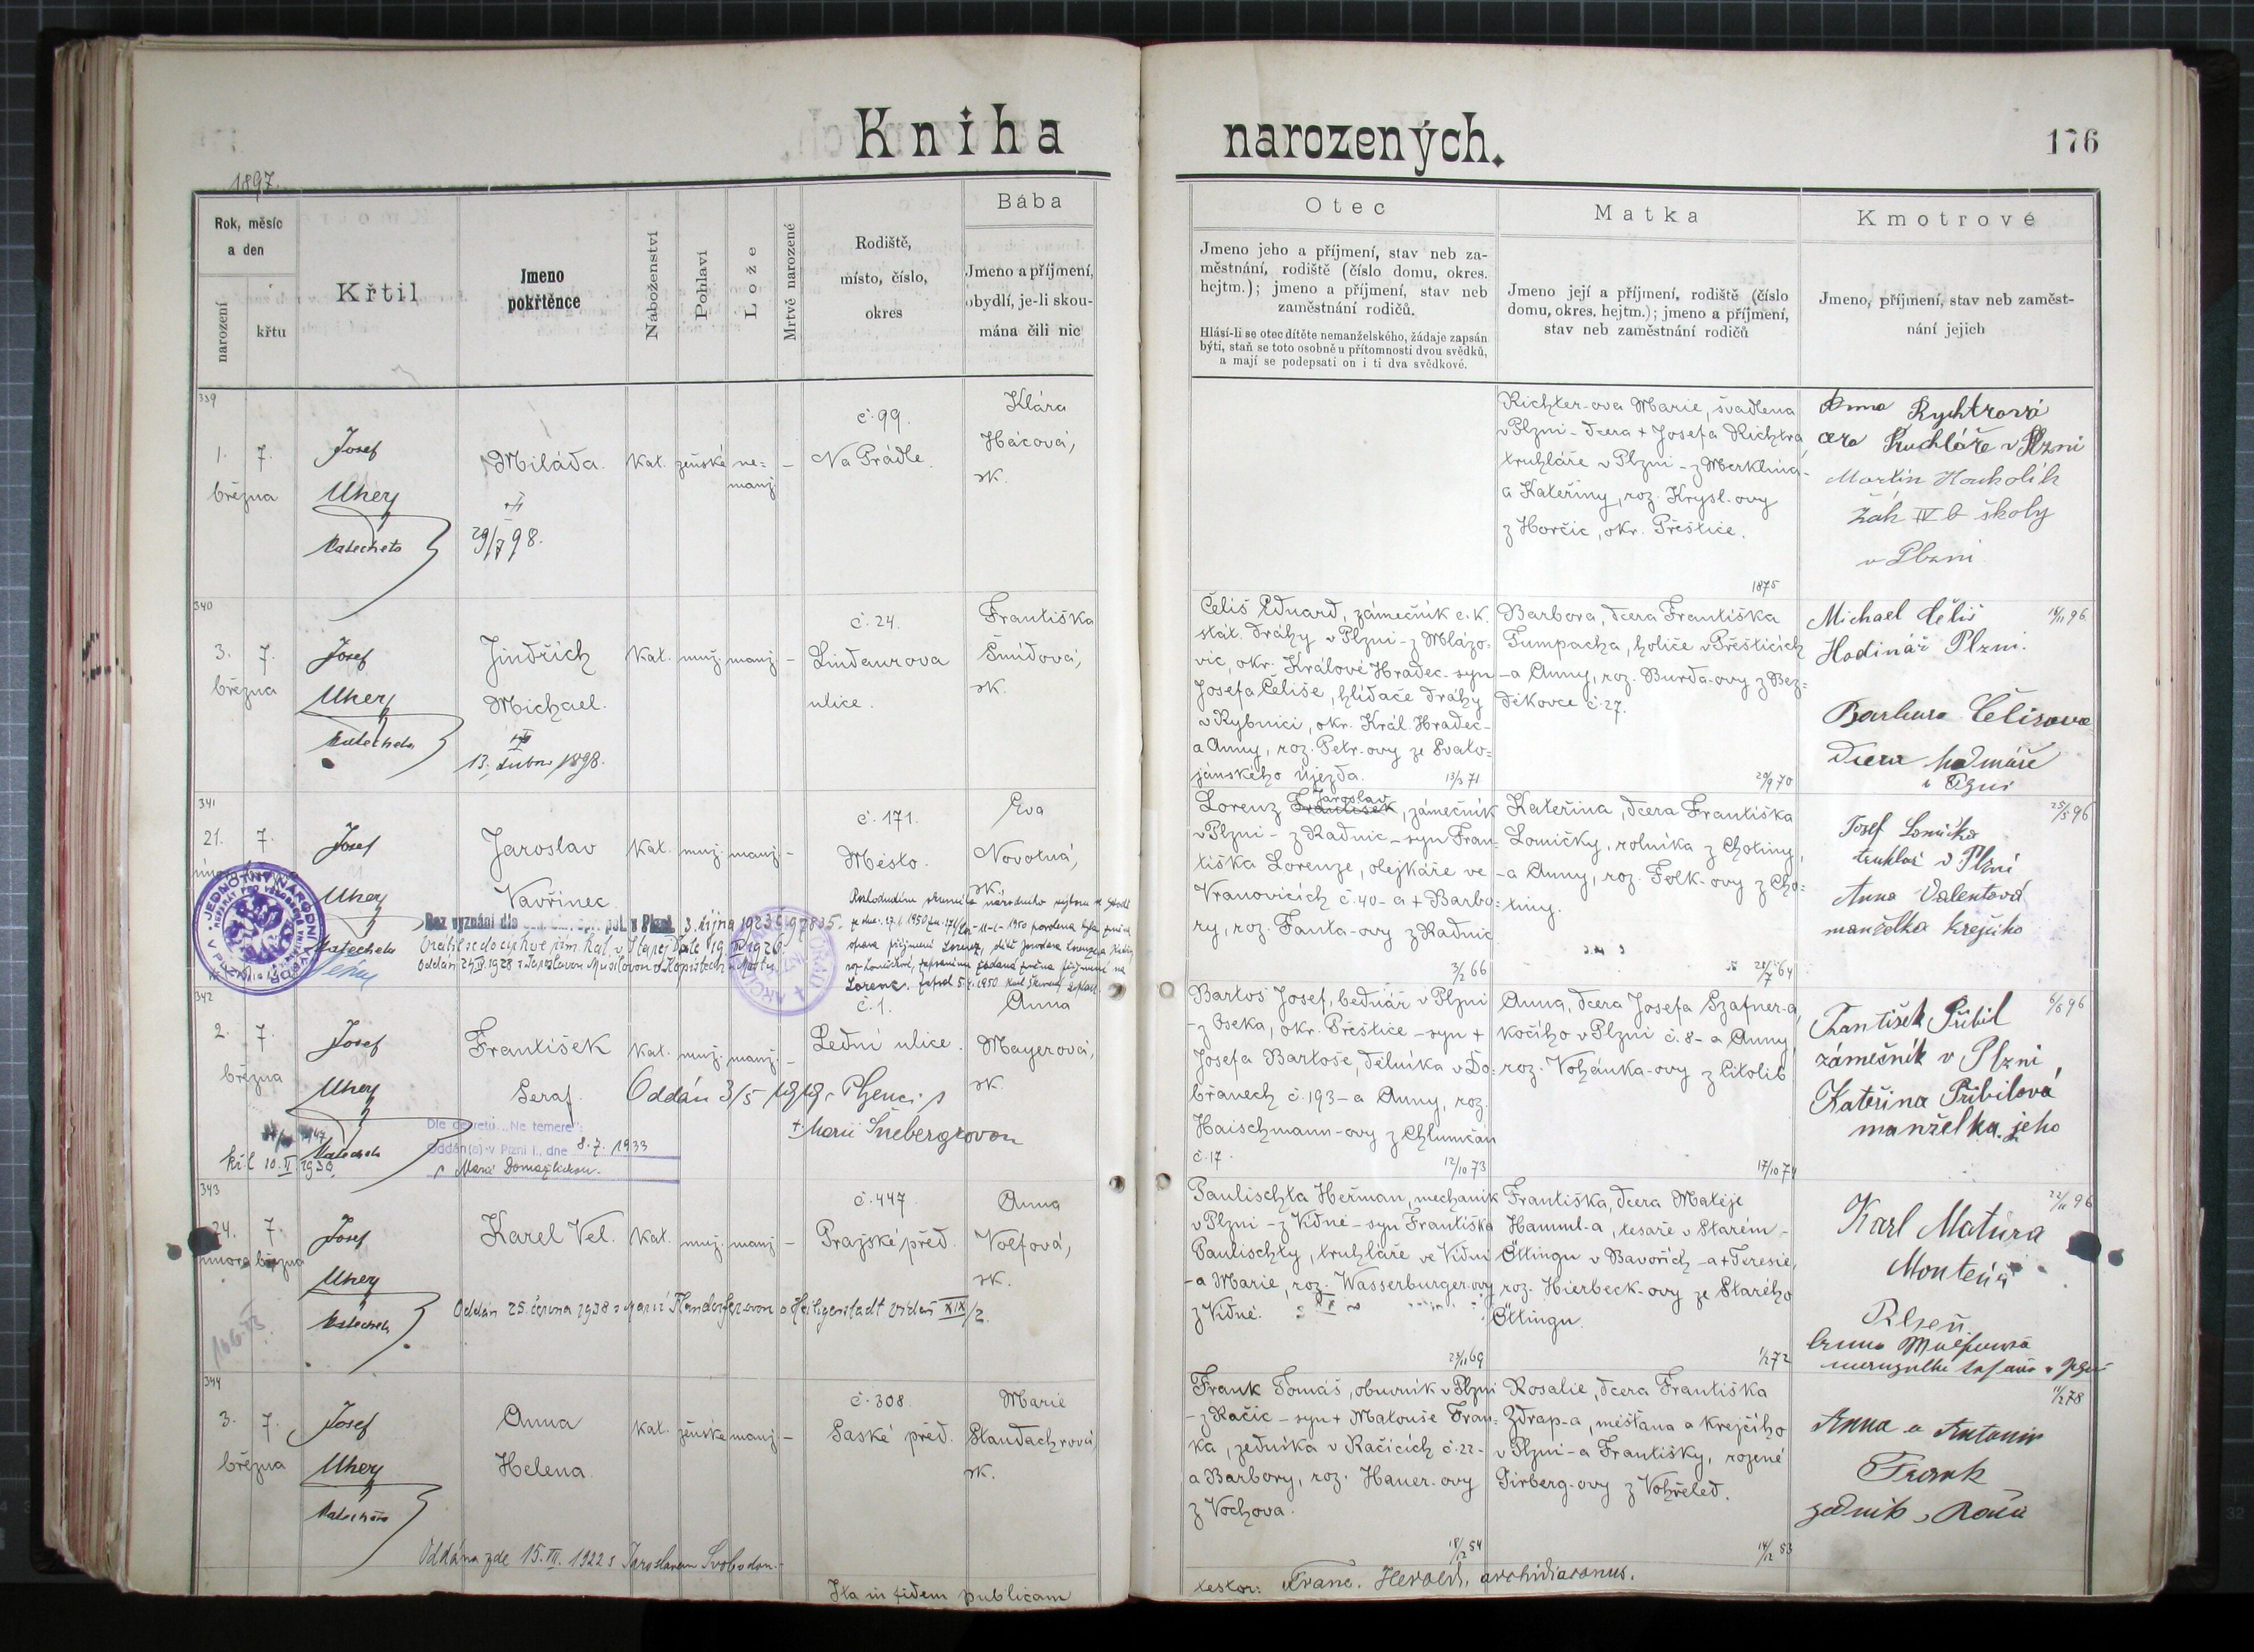 Kniha narozených.
176
1897.
Rok, měsíc
a den
narození
křtu
Křtil
Jmeno
pokřtěnce
Náboženství
Pohlaví
Lože
Mrtvě narozené
Rodiště,
místo, číslo,
okres
Bába
Jmeno a příjmení,
obydlí, je-li skou-
mána čili nic
Otec
Jmeno jeho a příjmení, stav neb za-
městnání, rodiště (číslo domu, okres.
hejtm.); jmeno a příjmení, stav neb
zaměstnání rodičů.
Hlásí-li se otec dítěte nemanželského, žádaje zapsán
býti, staň se toto osobně u přítomnosti dvou svědků,
a mají se podepsati on i ti dva svědkové.
Matka
Jmeno její a příjmení, rodiště (číslo
domu, okres. hejtm.); jmeno a příjmení,
stav neb zaměstnání rodičů
Kmotrové
Jmeno, příjmení, stav neb zaměst-
nání jejich
339
1. 7.
března
Josef
Uhery
Katecheta
Milada.
29/7 98.
Kat. ženské ne=
manž. –
č. 99.
Na Prádle.
Klára
Hácová,
zk.
Richter-ova Marie, švadlena
v Plzni - dcera + Josefa Richtra,
truhláře v Plzni - z Merklína -
a Kateřiny, roz. Krysl-ovy
z Horčic, okr. Přeštice.
1875
Anna Rychtrová
dcera truhláře v Plzni
Martin Houholík
žák IV b školy
v Plzni
340
3. 7.
března
Josef
Uhery
Katecheta
Jindřich
Michael.
13. dubna 1898.
Kat. muž. manž. –
č. 24.
Lindaurova
ulice.
Františka
Šmídová,
zk.
Čeliš Eduard, zámečník c. k.
stát. dráhy v Plzni - z Mlázo-
vic, okr. Králové Hradec - syn
Josefa Čeliše, hlídače dráhy
v Rybnici, okr. Král. Hradec -
a Anny, roz. Petr-ovy ze Svato-
jánského Újezda.
13/3 71
Barbora, dcera Františka
Tumpacha, holiče v Přešticích
- a Anny, roz. Burda-ovy z Bez-
děkovce č. 27.
20/9 70
Michael Čeliš
18/11 96.
Hodinář Plzni.
Barbora Čelisova
dcera hodináře
v Plzni
341
21. 7.
února
Josef
Uhery
Katecheta
Jaroslav
Vavřinec
Kat. muž. manž. –
č. 171.
Město.
Eva
Novotná,
zk.
Bez vyznání dle
pol. v Plzni 3. října 1923 č. 97835.
Oddán 24/IV. 1928 s Jaroslavou Musilovou
Lorenz Jaroslav, zámečník
v Plzni - z Radnic - syn Fran-
tiška Lorenze, olejkáře ve
Vranovicích č. 40 - a + Barbo-
ry, roz. Fanta-ovy z Radnic
3/2 66
Kateřina, dcera Františka
Lomičky, rolníka z Chotiny,
- a Anny, roz. Folk-ovy z Cho-
tiny.
28/7 64
25/5 96
Josef Lomička
truhlář v Plzni
Anna Valentová
manželka krejčího
342
2. 7.
března
Josef
Uhery
Katecheta
František
Seraf.
Kat. muž. manž. –
č. 1.
Lední ulice.
Anna
Mayerová,
zk.
Oddán 3/5 1919 v Plzenci s
Marií Šnebergrovou
Dle dekretu „Ne temere":
Oddán(a) v Plzni I., dne 8. 7. 1933
s Marií Domažlickou.
křl. 10. II. 1939
Bartoš Josef, bednář v Plzni
- z Oseka, okr. Přeštice - syn +
Josefa Bartoše, dělníka v Do-
břanech č. 193 - a Anny, roz.
Haischmann-ovy z Chlumčan
č. 17.
12/10 73
Anna, dcera Josefa Szafner-a,
kočího v Plzni č. 8 - a Anny,
roz. Vohánka-ovy z Litolib
17/10 74
6/8 96
František Přibil
zámečník v Plzni
Kateřina Přibilová
manželka jeho
343
24. 7.
února března
Josef
Uhery
Katecheta
Karel Vel.
Kat. muž. manž. –
č. 447.
Pražské před.
Anna
Volfová,
zk.
Oddán 25. června 1938 s Marií Flandorferovou v Heiligenstadt Vídeň XIX/2.
Paulischta Heřman, mechanik
v Plzni - z Vídně - syn Františka
Paulischty, truhláře ve Vídni
- a Marie, roz. Wasserburger-ovy
z Vídně.
23/11 69
Františka, dcera Matěje
Hamml-a, tesaře v Starém -
Öttingu v Bavořích - a + Teresie,
roz. Hierbeck-ovy ze Starého
Öttingu.
1/2 72
22/11 96
Karl Matura
Monteur
Pilsen
344
3. 7.
března
Josef
Uhery
Katecheta
Anna
Helena.
Kat. ženské manž. –
č. 308.
Saské před.
Marie
Standachrová,
zk.
Oddána zde 15. VII. 1922 s Jaroslavem Svobodou.
Frank Tomáš, obuvník v Plzni
- z Račic - syn + Matouše Fran-
ka, zedníka v Račicích č. 22 -
a Barbory, roz. Hauer-ovy
z Vochova.
18/12 54
Rosalie, dcera Františka
Zdrap-a, měšťana a krejčího
v Plzni - a Františky, rozené
Pirberg-ovy z Vohřeled.
14/12 53
11/2 78
Anna a Antonín
Frank
zedník
Ita in fidem publicam
testor: Franc. Herold, archidiaconus.